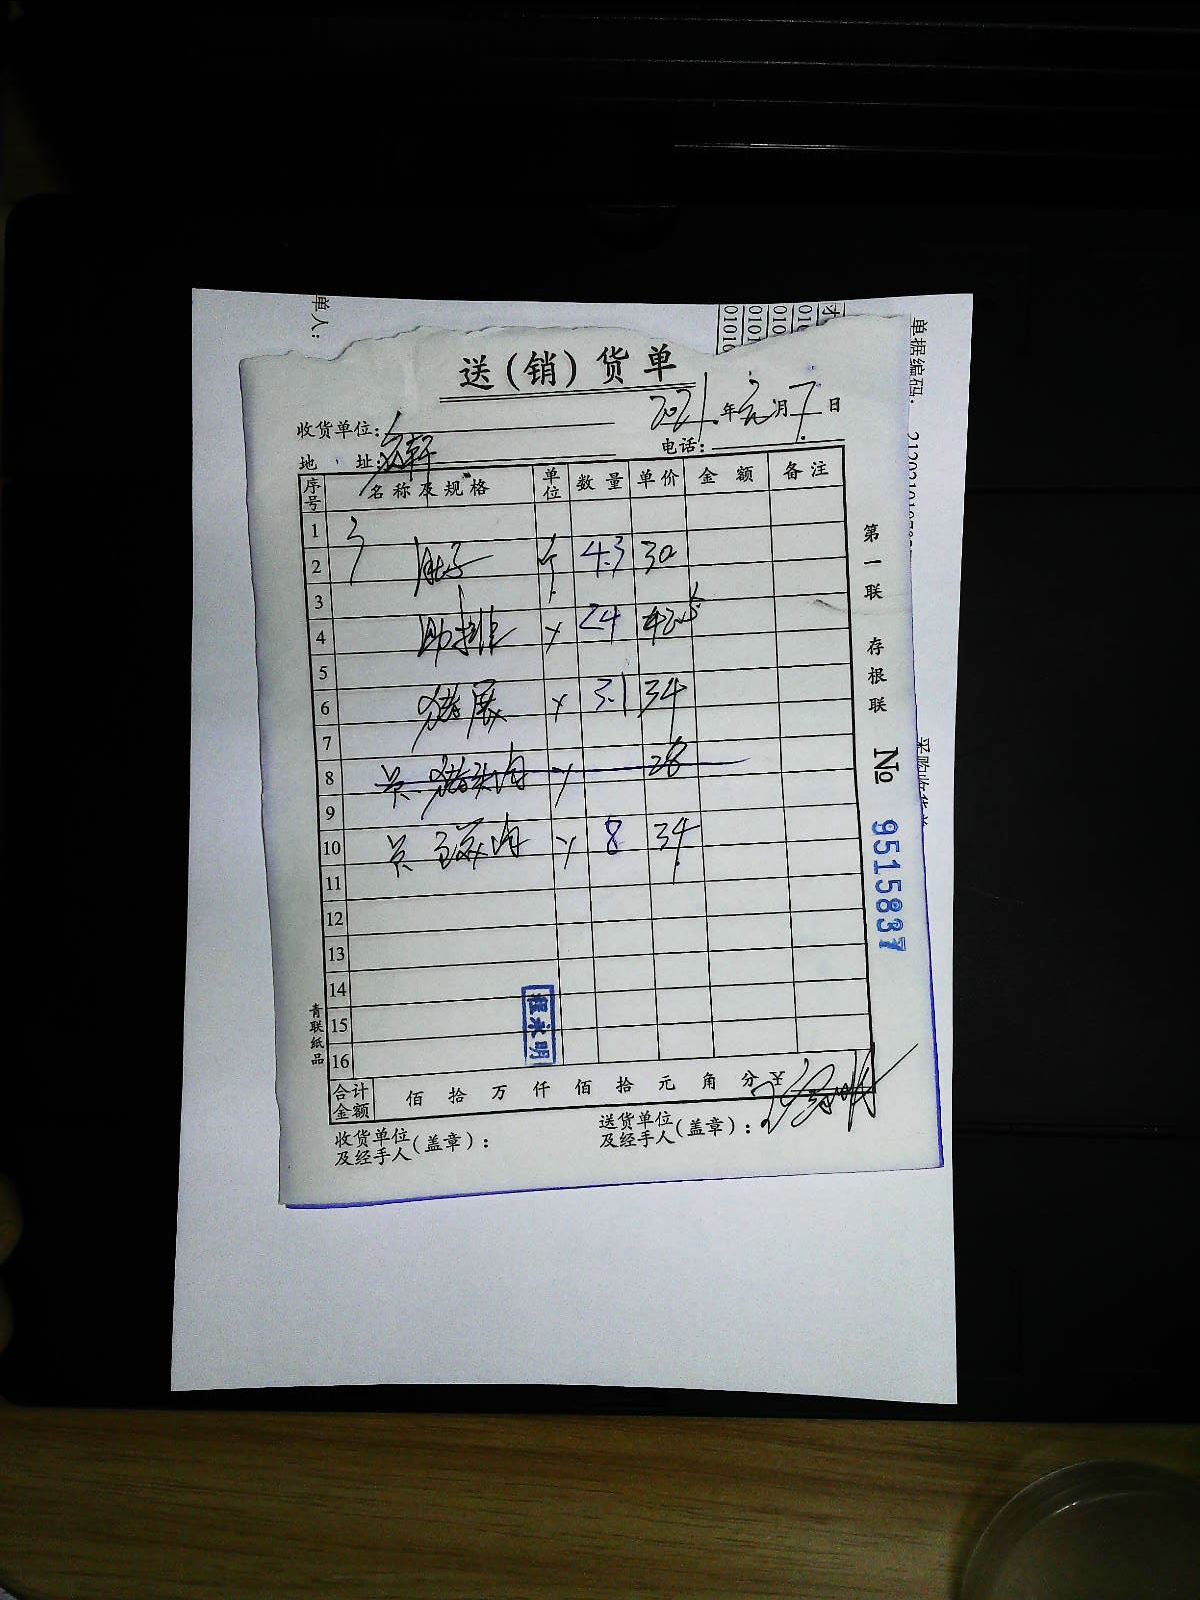 单人:
单据编码:
送(销)货单
2021.年元月7日
收货单位:
地 址:
电话:
序号 名称及规格 单位 数量 单价 金额 备注
1
2 肚子 个 4.3 30
3
4 助排 斤 24 42.5
5
6 猪展 斤 3.1 34
7
8 猪头肉 斤 28
9
10 肉 斤 8 34
11
12
13
14
15
16
合计金额 佰 拾 万 仟 佰 拾 元 角 分
收货单位及经手人(盖章):
送货单位及经手人(盖章):
第一联 存根联
№ 9515837
青联纸品